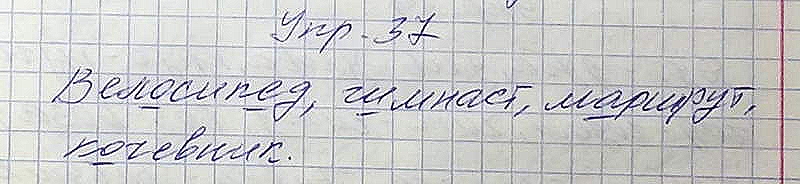 Упр. 37
Велосипед, гимнаст, маршрут,
кочевник.